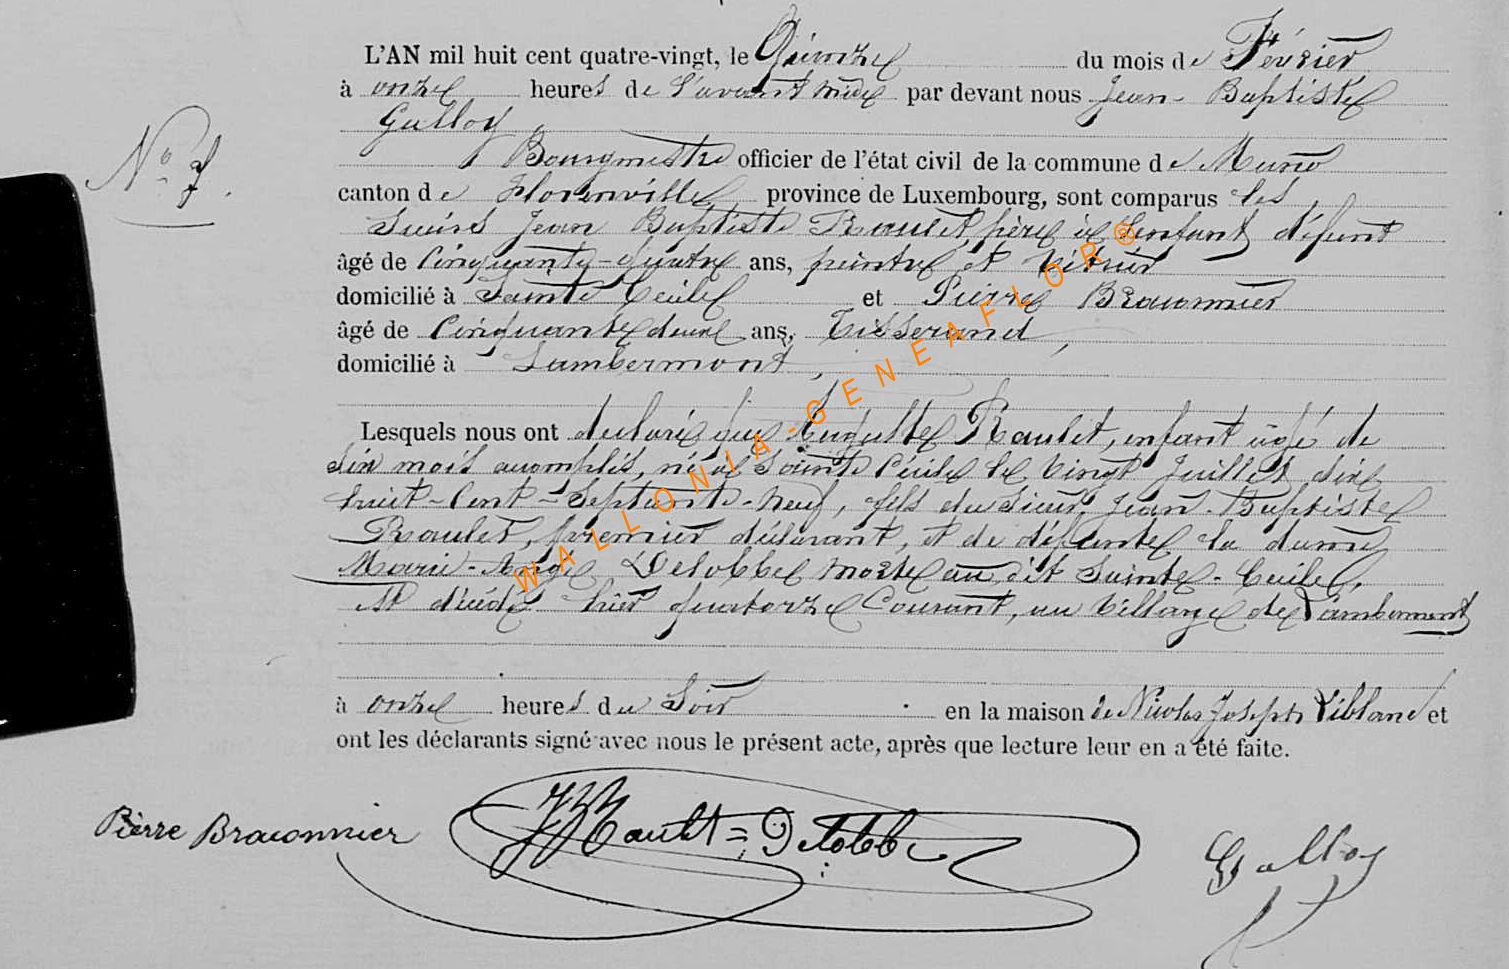 L'AN mil huit cent quatre-vingt, le Quinze du mois de Février
à onze heures de l'avant midi par devant nous Jean-Baptiste
Galloy
N° 7.
Bourgmestre officier de l'état civil de la commune de Muno
canton de Florenville, province de Luxembourg, sont comparus les
Sieurs Jean Baptiste Raulet, père à l'enfant défunt
âgé de Cinquante-quatre ans, peintre et vitrier
domicilié à Sainte Cécile et Pierre Braconnier
âgé de Cinquante deux ans, Tisserand,
domicilié à Lambermont,
Lesquels nous ont déclaré que Auguste Raulet, enfant âgé de
Six mois accomplis, né à Sainte Cécile le vingt Juillet dix
huit-Cent-Septante-neuf, fils du sieur Jean-Baptiste
Raulet, premier déclarant, et de défunte la dame
Marie- Delobbel morte au dit Sainte-Cécile,
est décédé hier quatorze Courant, au village de Lambermont
à onze heures du Soir en la maison de Nicolas Joseph Liblanc et
ont les déclarants signé avec nous le présent acte, après que lecture leur en a été faite.
Pierre Braconnier Raulet=Delobbe Galloy
WALLONIA-GENEAFLOR®